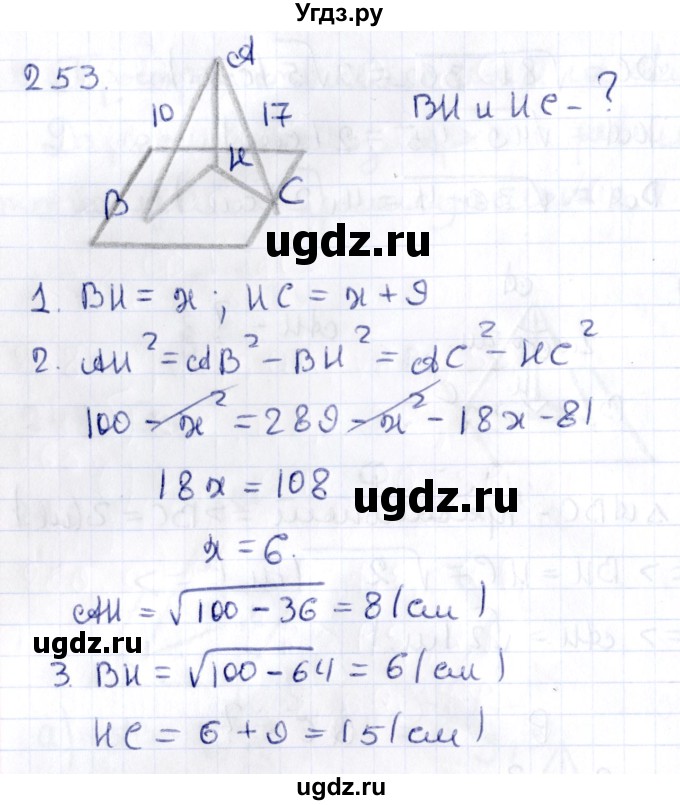 Угдз.ру
253.
A
10
17
BH и HC - ?
H
B
C
ugdz.ru
1. BH = x ; HC = x + 9
2. AH² = AB² - BH² = AC² - HC²
100 - x² = 289 - x² - 18x - 81
18x = 108
ugdz.ru
x = 6.
AH = √100 - 36 = 8 (см)
ugdz.ru
3. BH = √100 - 64 = 6 (см)
HC = 6 + 9 = 15 (см)
ugdz.ru